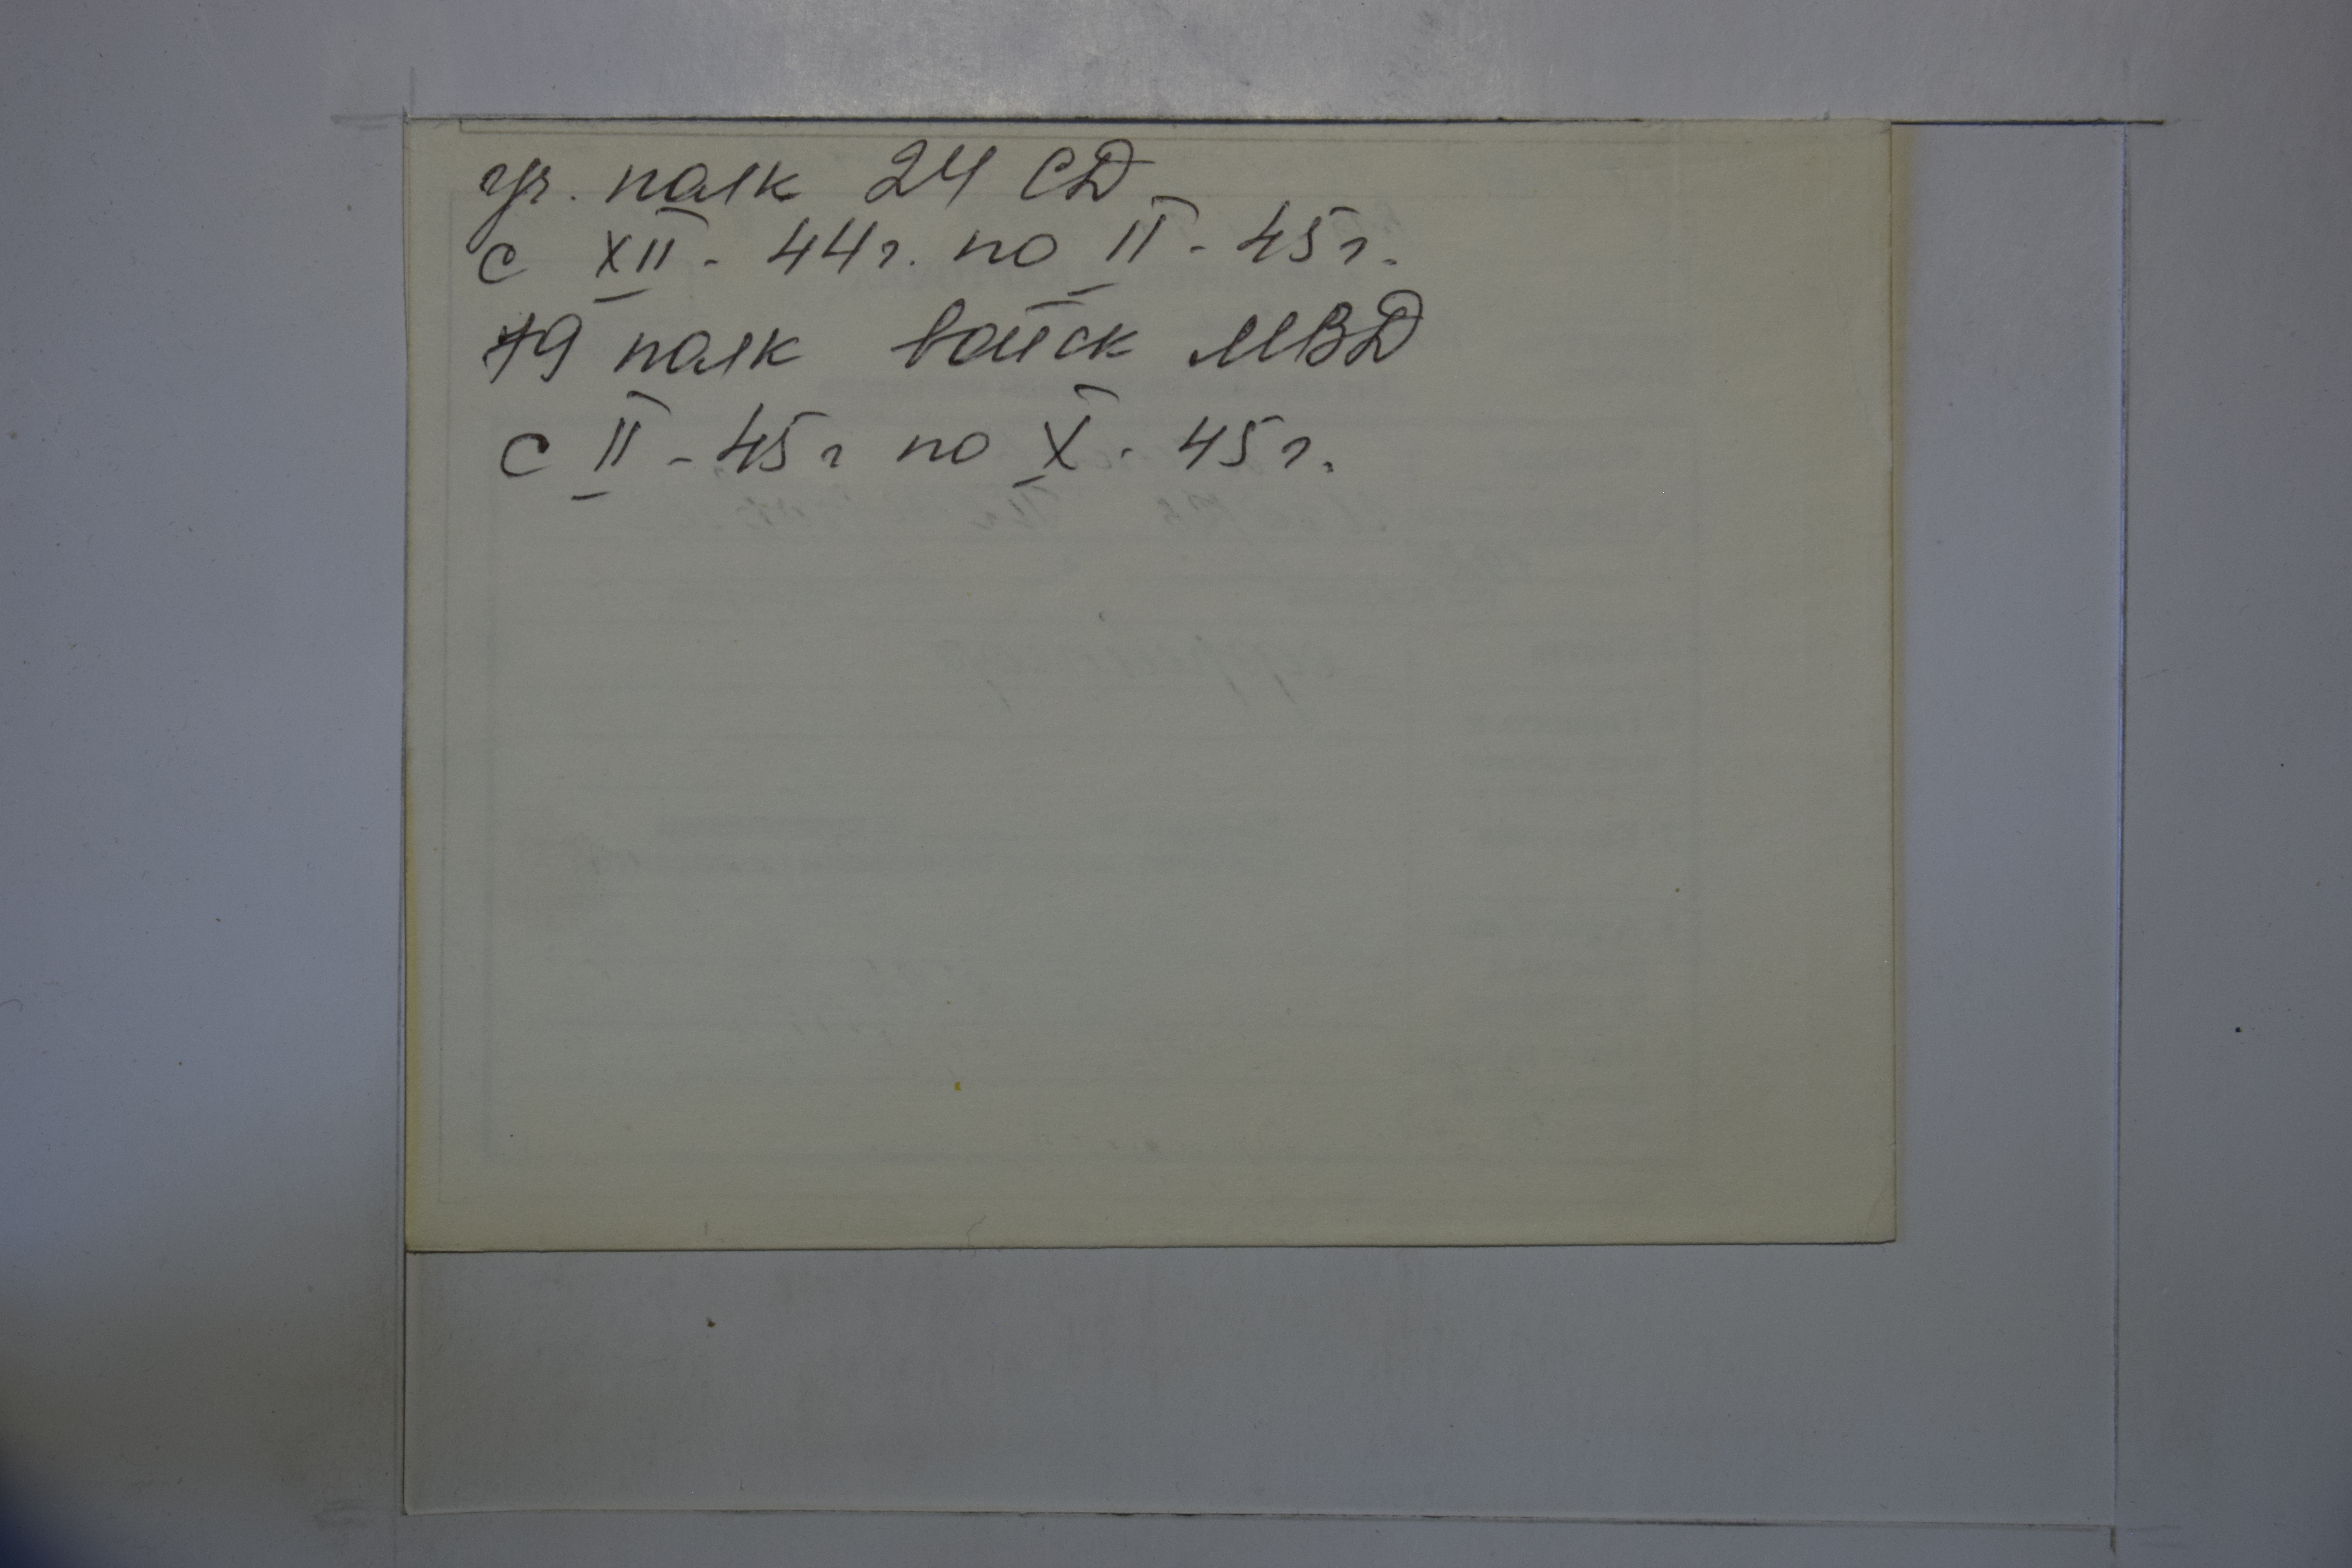 уч. полк 24 СД
с XII - 44г. по II - 45г.
79 полк войск МВД
с II - 45г по X - 45г.